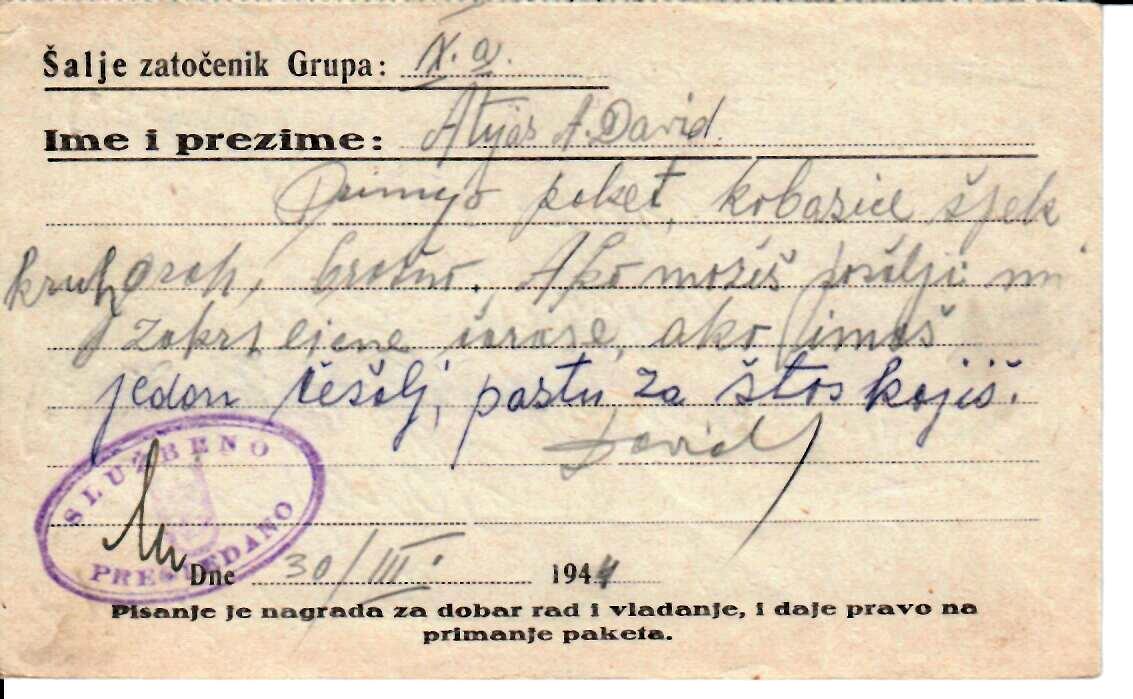 Šalje zatočenik Grupa: IX. a.
Ime i prezime: Atijas A. David
Primljio paket, kobasice
kruh, grah, brašno. Ako možeš pošalji mi
čarape, ako imaš
jedan češalj, pastu za
David
SLUŽBENO
PREGLEDANO
Dne 30/III. 1944
Pisanje je nagrada za dobar rad i vladanje, i daje pravo na
primanje paketa.